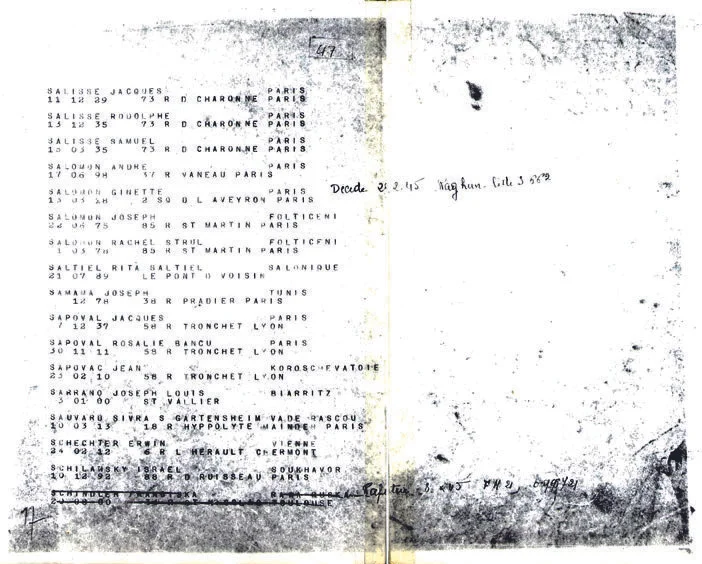 47
SALISSE JACQUES PARIS
11 12 29 73 R D CHARONNE PARIS
SALISSE RODOLPHE PARIS
13 12 35 73 R D CHARONNE PARIS
SALISSE SAMUEL PARIS
15 03 35 73 R D CHARONNE PARIS
SALOMON ANDRE PARIS
17 06 98 37 R VANEAU PARIS
SALOMON GINETTE PARIS
13 03 28 2 SQ D L AVEYRON PARIS
Décédé 2.45
SALOMON JOSEPH FOLTICENI
22 06 75 85 R ST MARTIN PARIS
SALOMON RACHEL STRUL FOLTICENI
1 03 78 85 R ST MARTIN PARIS
SALTIEL RITA SALTIEL SALONIQUE
21 07 89 LE PONT D VOISIN
SAMAMA JOSEPH TUNIS
12 78 38 R PRADIER PARIS
SAPOVAL JACQUES PARIS
7 12 37 58 R TRONCHET LYON
SAPOVAL ROSALIE BANCU PARIS
30 11 11 58 R TRONCHET LYON
SAPOVAC JEAN KOROSCHEVATOIE
23 02 10 58 R TRONCHET LYON
SARRANO JOSEPH LOUIS BIARRITZ
3 01 00 ST VALLIER
SAUVARD SIVRA S GARTENSHEIM VADE RASCOU
10 03 13 18 R HYPPOLYTE MAINDE PARIS
SCHECHTER ERWIN VIENNE
24 02 12 6 R L HERAULT CHERMONT
SCHILAWSKY ISRAEL SOUKHAVOR
10 12 92 88 R D RUISSEAU PARIS
SCHINDLER FRANZISKA
TOULOUSE
17